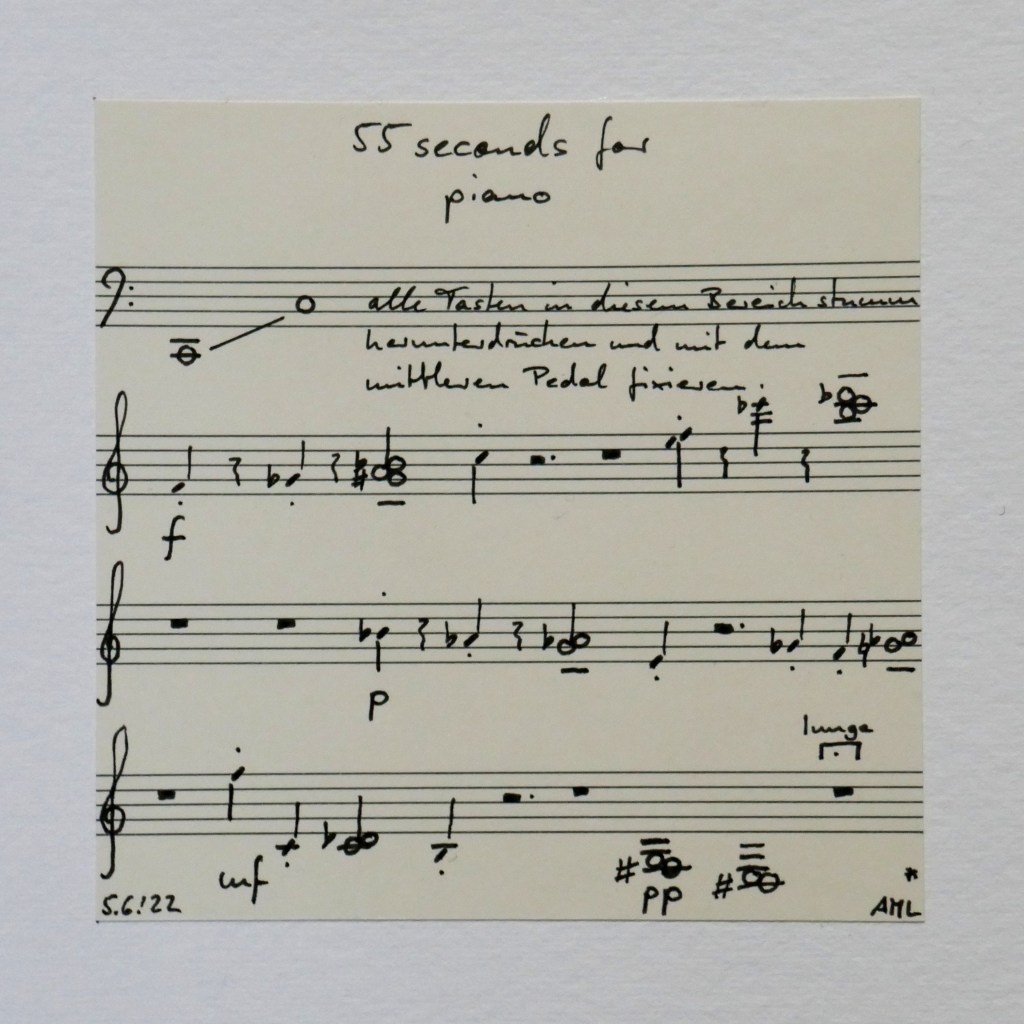 55 seconds for
piano
alle Tasten in diesem Bereich stumm
herunterdrücken und mit dem
mittleren Pedal fixieren.
f
p
lunga
mf
pp
5.6.'22
*
AML